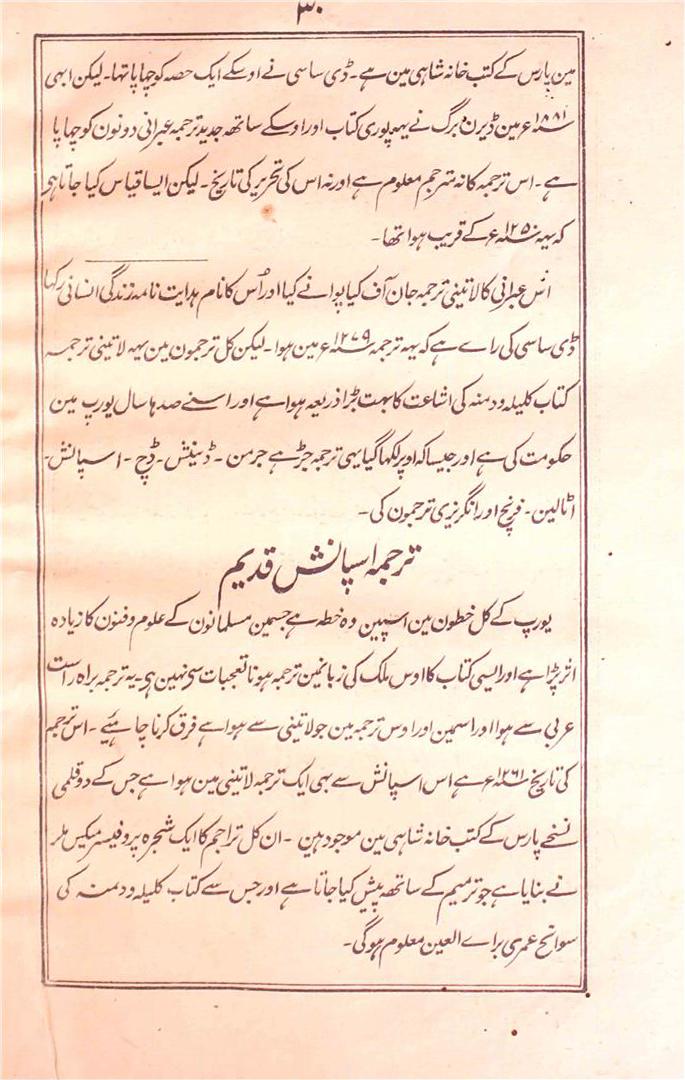 ۳۰
مین پارس کے کتب خانہ شاہی مین ہے۔ ڈی ساسی نے اوسکے ایک حصہ کو چھاپا تھا۔ لیکن ابھی
۱۸۸۱ء مین ڈیرن برگ نے یہہ پوری کتاب اور اوسکے ساتھ جدید ترجمہ عبرانی دونون کو چھاپا
ہے۔ اس ترجمہ کا نہ مترجم معلوم ہے اور نہ اس کی تحریر کی تاریخ۔ لیکن ایسا قیاس کیا جاتا ہی
کہ یہہ ۱۲۵۰ء کے قریب ہوا تھا۔
اس عبرانی کا لاتینی ترجمہ جان آف کیاپوا نے کیا اور اُس کا نام ہدایت نامہ زندگی انسانی رکھا
ڈی ساسی کی راے ہے کہ یہہ ترجمہ ۱۲۷۹ء مین ہوا۔ لیکن کل ترجمون مین یہہ لاتینی ترجمہ
کتاب کلیلہ و دمنہ کی اشاعت کا بہت بڑا ذریعہ ہوا ہے اور اسنے صدہا سال یورپ مین
حکومت کی ہے اور جیسا کہ اوپر لکھا گیا یہی ترجمہ جڑ ہے جرمن۔ ڈینش۔ ڈچ۔ اسپانش۔
اٹالین۔ فرنچ اور انگریزی ترجمون کی۔
ترجمہ اسپانش قدیم
یورپ کے کل خطون مین اسپین وہ خطہ ہے جسمین مسلمانون کے علوم و فنون کا زیادہ
اثر پڑا ہے اور ایسی کتاب کا اوس ملک کی زبانمین ترجمہ ہونا تعجبات سی نہین ہی۔ یہ ترجمہ براہ راست
عربی سے ہوا اور اسمین اور اوس ترجمہ مین جو لاتینی سے ہوا ہے فرق کرنا چاہئیے۔ اس ترجمہ
کی تاریخ ۱۲۶۱ء ہے اس اسپانش سے بھی ایک ترجمہ لاتینی مین ہوا ہے جس کے دو قلمی
نسخے پارس کے کتب خانہ شاہی مین موجود ہین۔ ان کل تراجم کا ایک شجرہ پروفیسر میکس ملر
نے بنایا ہے جو ترمیم کے ساتھ پیش کیا جاتا ہے اور جس سے کتاب کلیلہ و دمنہ کی
سوانح عمری براے العین معلوم ہوگی۔